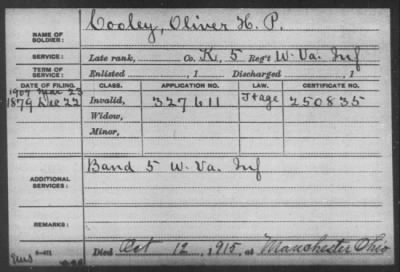 NAME OF SOLDIER: Cooley, Oliver H. P.
SERVICE: Late rank, Co. K, 5 Reg't W. Va. Inf
TERM OF SERVICE: Enlisted , 1 Discharged , 1
DATE OF FILING. CLASS. APPLICATION NO. LAW. CERTIFICATE NO.
1907 Mar 23
1879 Dec 22 Invalid, 327611 J+age 250835
Widow,
Minor,
ADDITIONAL SERVICES: Band 5 W. Va. Inf
REMARKS:
Died Oct 12, 1915, at Manchester Ohio